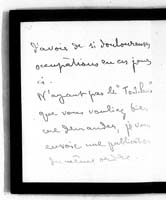 J'avais de si douloureuses
occupations en ces jours
là.
N'ayant pas le
que vous vouliez bien
me demander, je vous
envoie une publication
du même ordre.